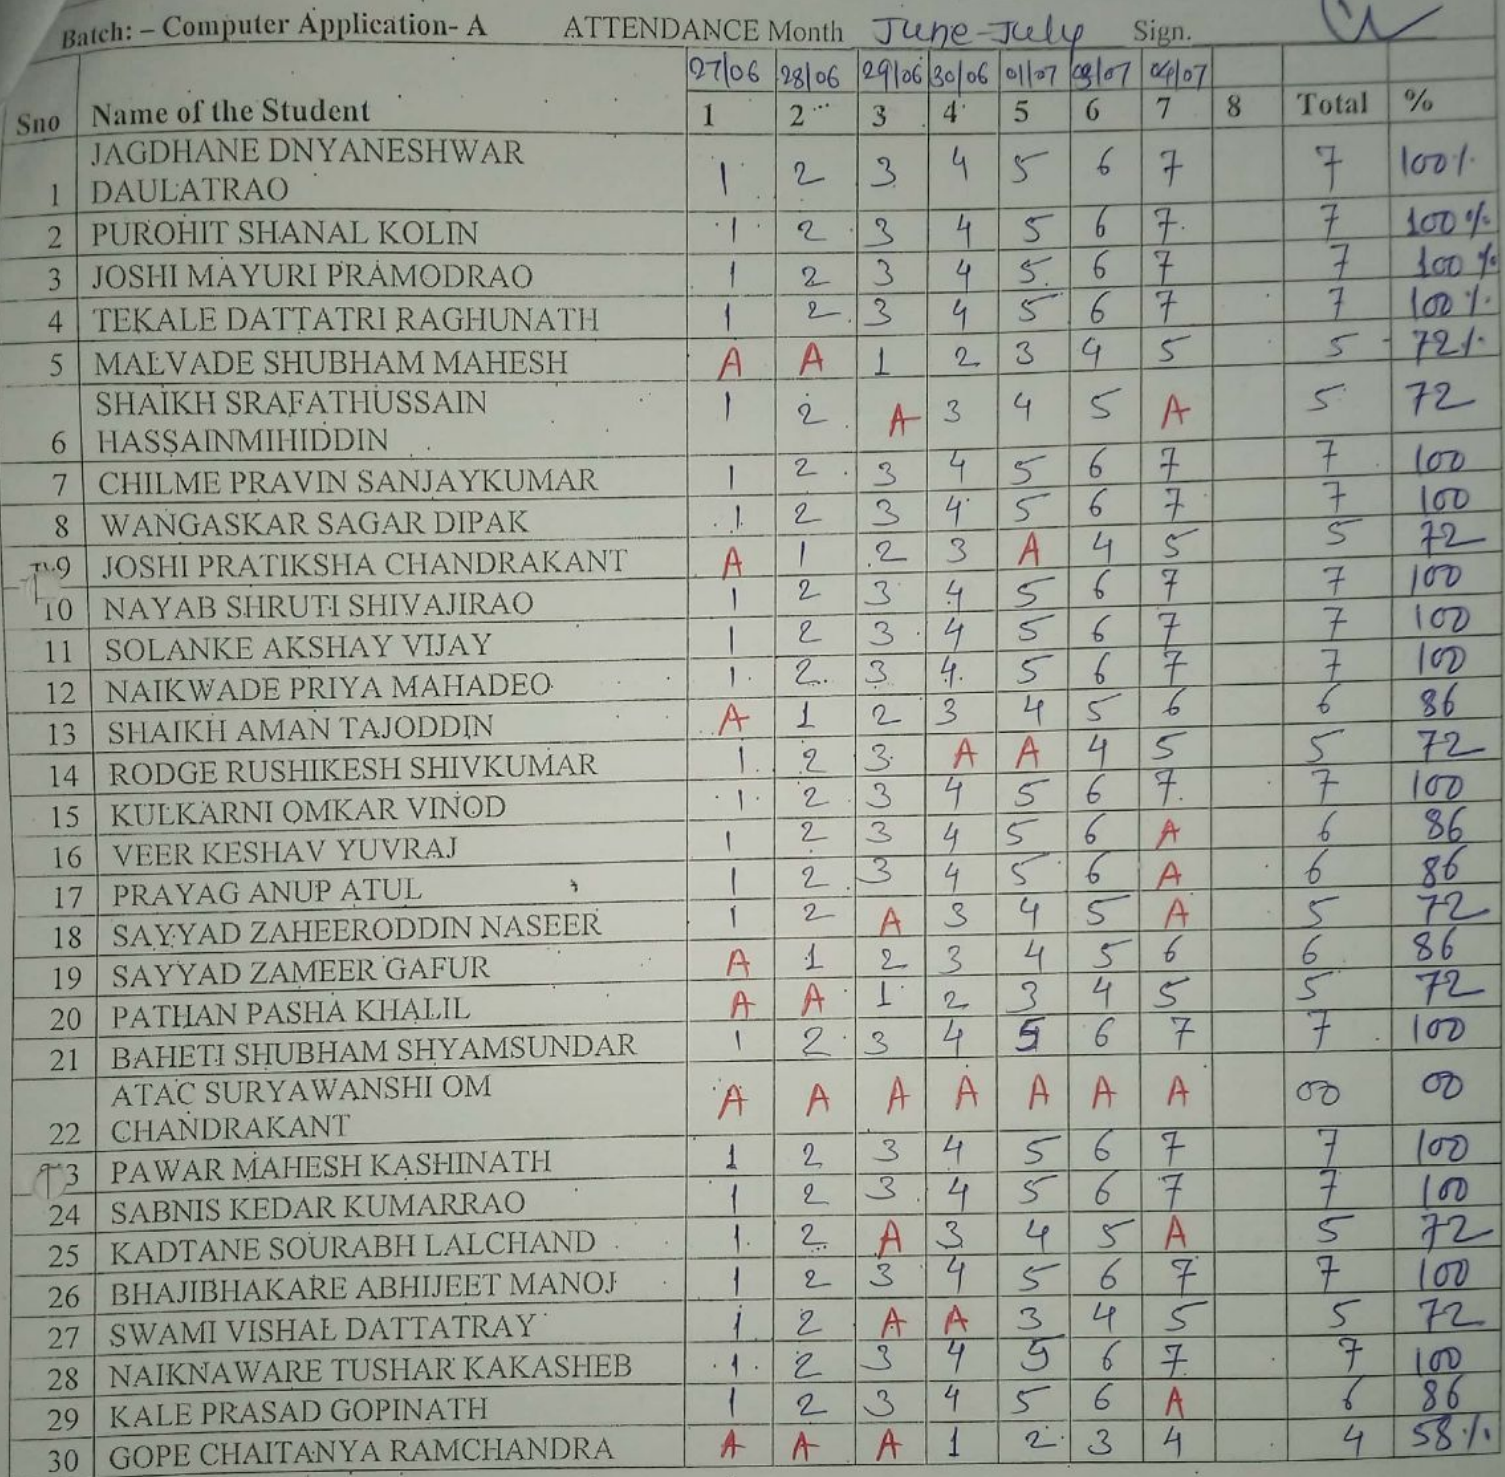 Batch: – Computer Application- A ATTENDANCE Month June-July Sign.
27/06 28/06 29/06 30/06 01/07 03/07 04/07
Sno Name of the Student 1 2 3 4 5 6 7 8 Total %
JAGDHANE DNYANESHWAR
1 DAULATRAO 1 2 3 4 5 6 7 7 100%
2 PUROHIT SHANAL KOLIN 1 2 3 4 5 6 7 7 100%
3 JOSHI MAYURI PRAMODRAO 1 2 3 4 5 6 7 7 100%
4 TEKALE DATTATRI RAGHUNATH 1 2 3 4 5 6 7 7 100%
5 MALVADE SHUBHAM MAHESH A A 1 2 3 4 5 5 72%
SHAIKH SRAFATHUSSAIN
6 HASSAINMIHIDDIN 1 2 A 3 4 5 A 5 72
7 CHILME PRAVIN SANJAYKUMAR 1 2 3 4 5 6 7 7 100
8 WANGASKAR SAGAR DIPAK 1 2 3 4 5 6 7 7 100
9 JOSHI PRATIKSHA CHANDRAKANT A 1 2 3 A 4 5 5 72
10 NAYAB SHRUTI SHIVAJIRAO 1 2 3 4 5 6 7 7 100
11 SOLANKE AKSHAY VIJAY 1 2 3 4 5 6 7 7 100
12 NAIKWADE PRIYA MAHADEO 1 2 3 4 5 6 7 7 100
13 SHAIKH AMAN TAJODDIN A 1 2 3 4 5 6 6 86
14 RODGE RUSHIKESH SHIVKUMAR 1 2 3 A A 4 5 5 72
15 KULKARNI OMKAR VINOD 1 2 3 4 5 6 7 7 100
16 VEER KESHAV YUVRAJ 1 2 3 4 5 6 A 6 86
17 PRAYAG ANUP ATUL 1 2 3 4 5 6 A 6 86
18 SAYYAD ZAHEERODDIN NASEER 1 2 A 3 4 5 A 5 72
19 SAYYAD ZAMEER GAFUR A 1 2 3 4 5 6 6 86
20 PATHAN PASHA KHALIL A A 1 2 3 4 5 5 72
21 BAHETI SHUBHAM SHYAMSUNDAR 1 2 3 4 5 6 7 7 100
ATAC SURYAWANSHI OM
22 CHANDRAKANT A A A A A A A 00 00
3 PAWAR MAHESH KASHINATH 1 2 3 4 5 6 7 7 100
24 SABNIS KEDAR KUMARRAO 1 2 3 4 5 6 7 7 100
25 KADTANE SOURABH LALCHAND 1 2 A 3 4 5 A 5 72
26 BHAJIBHAKARE ABHIJEET MANOJ 1 2 3 4 5 6 7 7 100
27 SWAMI VISHAL DATTATRAY 1 2 A A 3 4 5 5 72
28 NAIKNAWARE TUSHAR KAKASHEB 1 2 3 4 5 6 7 7 100
29 KALE PRASAD GOPINATH 1 2 3 4 5 6 A 6 86
30 GOPE CHAITANYA RAMCHANDRA A A A 1 2 3 4 4 58%